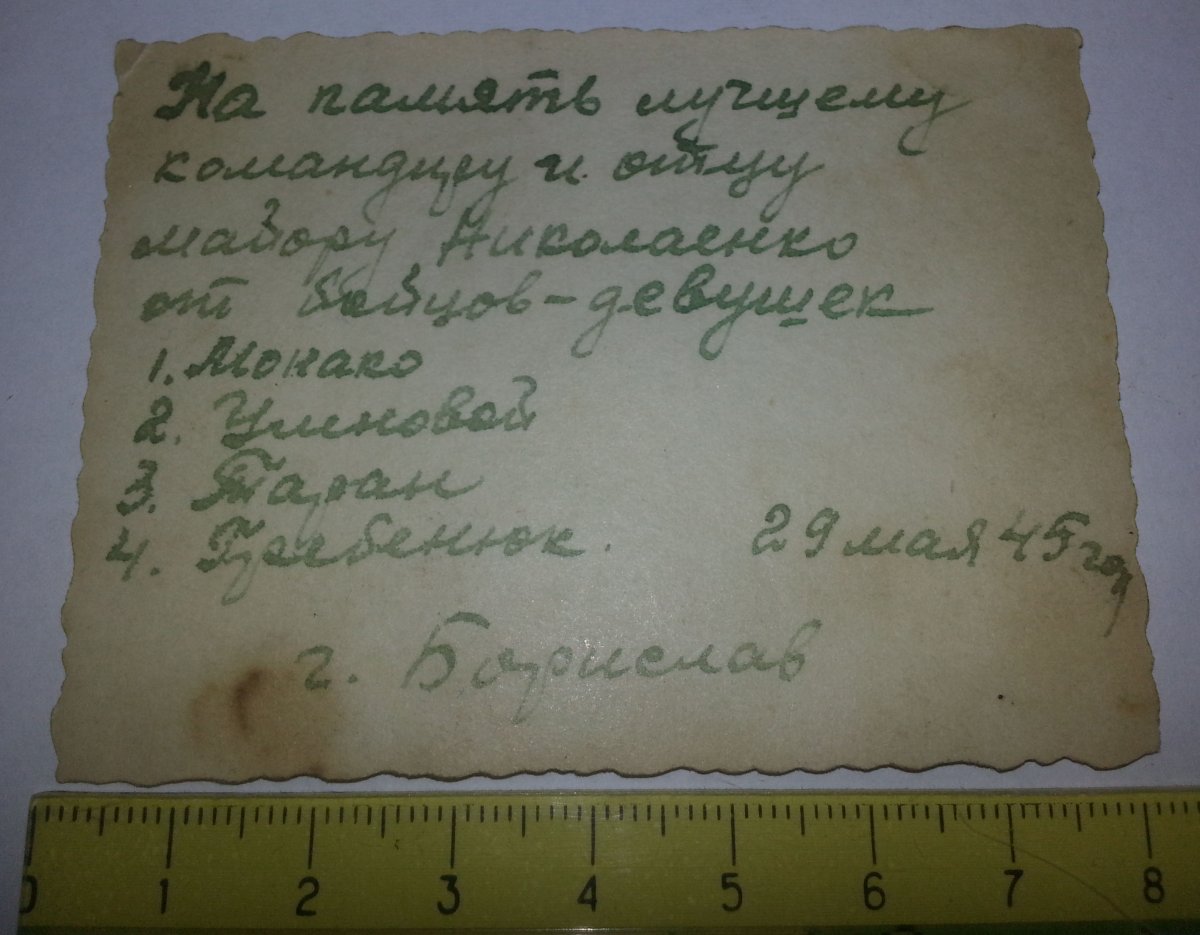 На память лучшему
командиру и отцу
майору Николаенко
от бойцов-девушек
1. Монако
2. Улиновой
3. Таран
4. Гребенюк. 29 мая 45 год
г. Борислав
0 1 2 3 4 5 6 7 8